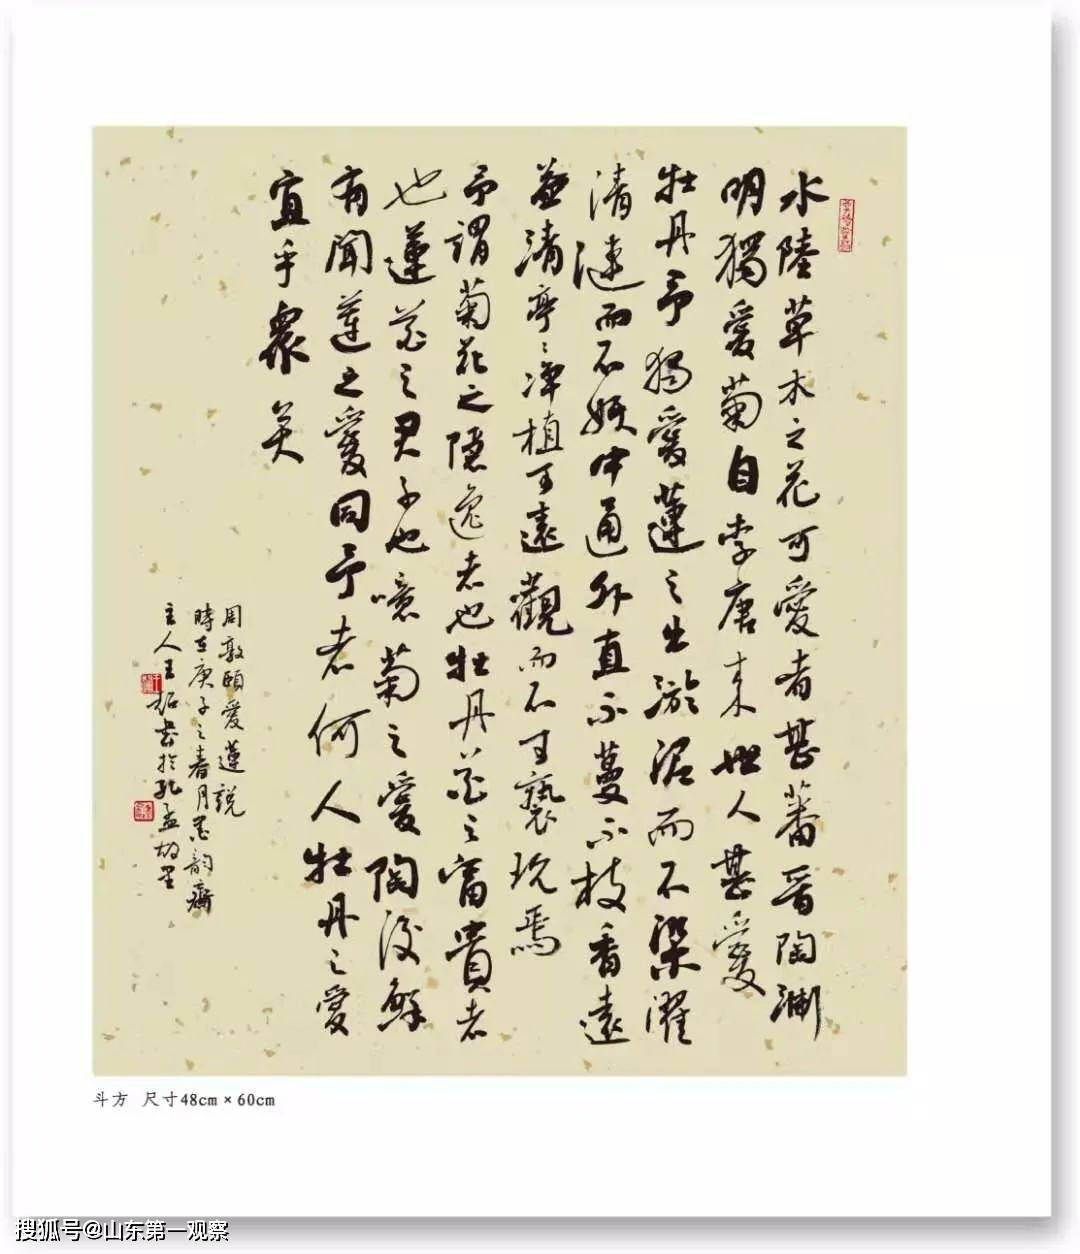 水陸草木之花可愛者甚蕃晋陶渊
明獨愛菊自李唐来世人甚愛
牡丹予獨愛蓮之出淤泥而不染濯
清漣而不妖中通外直不蔓不枝香遠
益清亭〻淨植可遠觀而不可褻玩焉
予謂菊花之隱逸者也牡丹花之富貴者
也蓮花之君子也噫菊之愛陶後鮮
有聞蓮之愛同予者何人牡丹之愛
宜乎衆矣
周敦頤愛蓮説
時在庚子之春月墨韵齋
主人王拓書於孔孟故里
斗方 尺寸48cm×60cm
搜狐号@山东第一观察